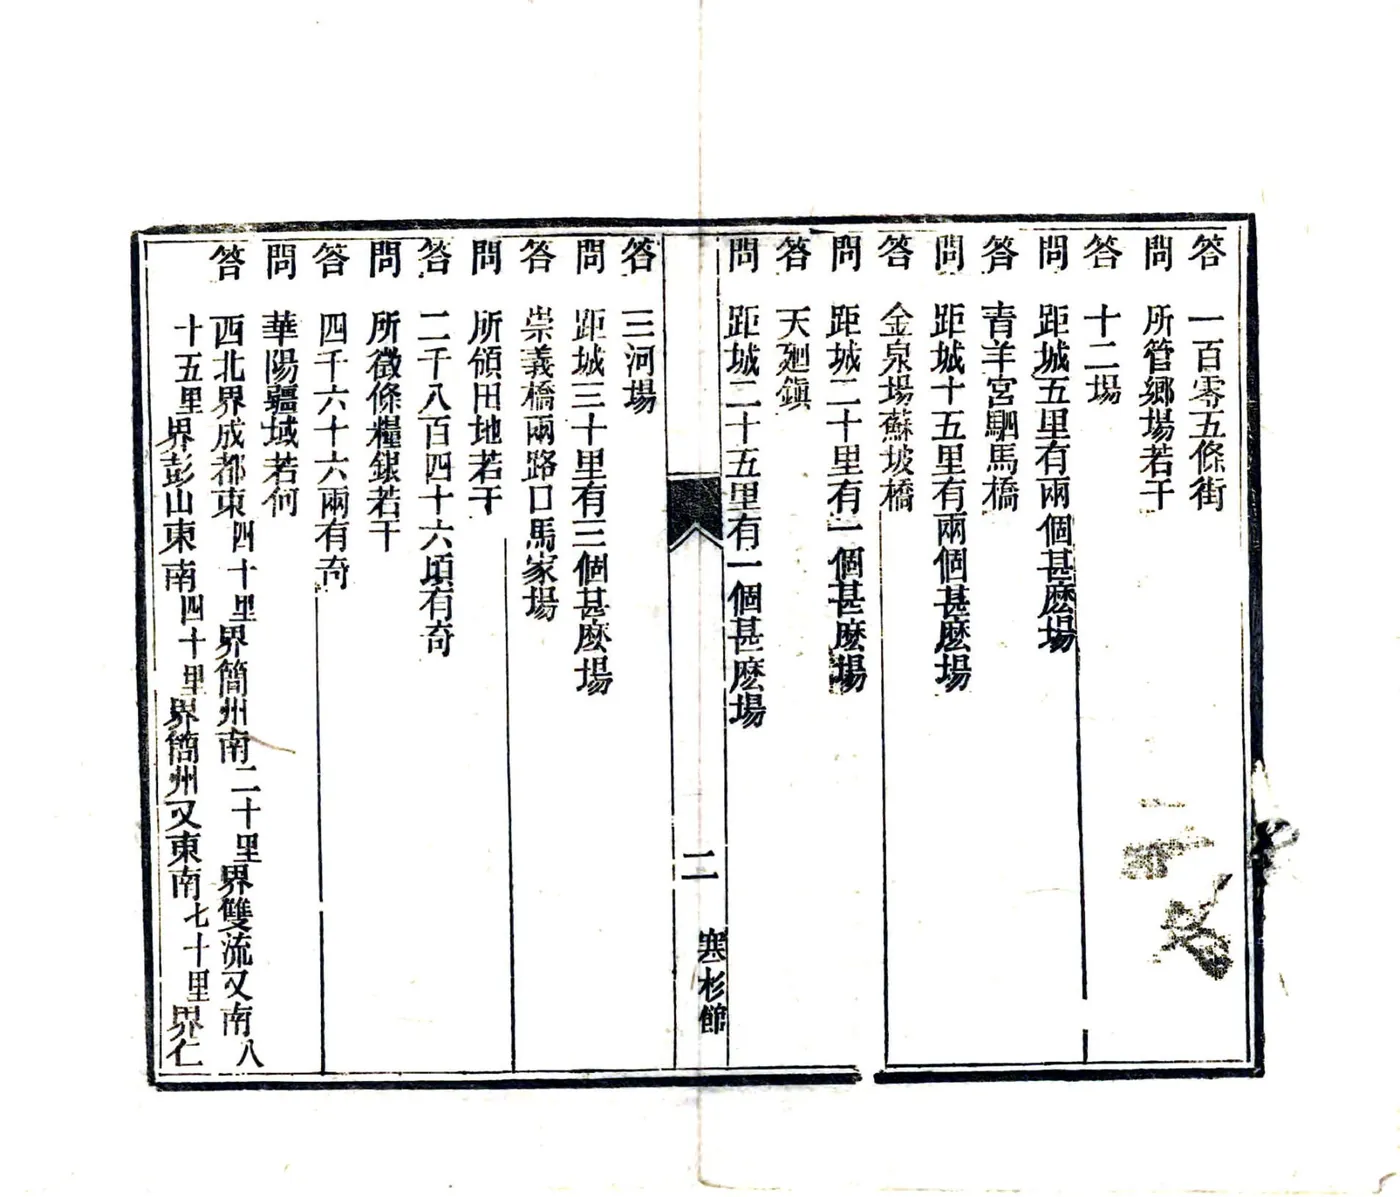 答 一百零五條街
問 所管鄉場若干
答 十二場
問 距城五里有兩個甚麽場
答 青羊宮駟馬橋
問 距城十五里有兩個甚麽場
答 金泉場蘇坡橋
問 距城二十里有一個甚麽場
答 天廻鎮
問 距城二十五里有一個甚麽場
二 寒杉館
答 三河場
問 距城三十里有三個甚麽場
答 崇義橋兩路口馬家場
問 所領田地若干
答 二千八百四十六頃有奇
問 所徵條糧銀若干
答 四千六十六兩有奇
問 華陽疆域若何
答 西北界成都東四十里界簡州南二十里界雙流又南八
十五里界彭山東南四十里界簡州又東南七十里界仁